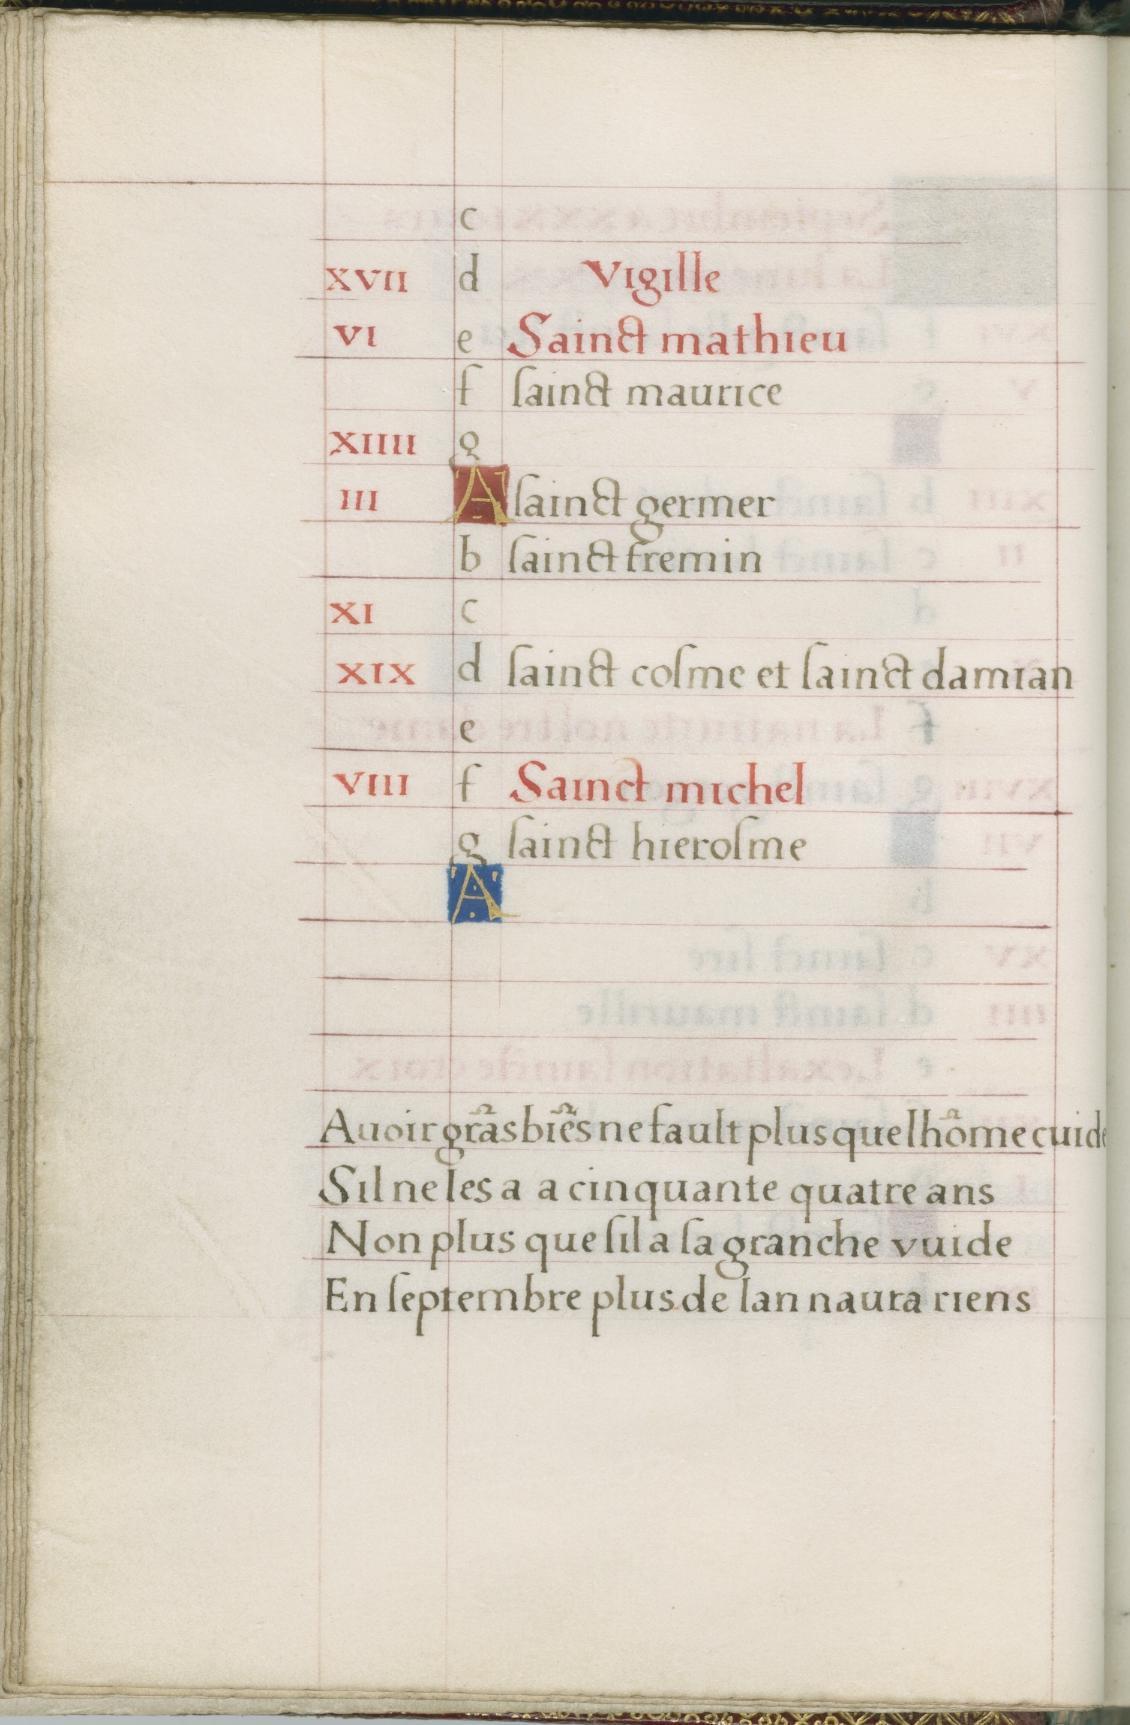 c
XVII d Vigille
VI e Sainct mathieu
f ſainct maurice
XIIII g
III A ſainct germer
b ſainct fremin
XI c
XIX d ſainct coſme et ſainct damian
e
VIII f Sainct michel
g ſainct hieroſme
A
Auoir grãs biẽs ne fault plus que lhõme cuide
Sil ne les a a cinquante quatre ans
Non plus que ſil a ſa granche vuide
En ſeptembre plus de lan naura riens